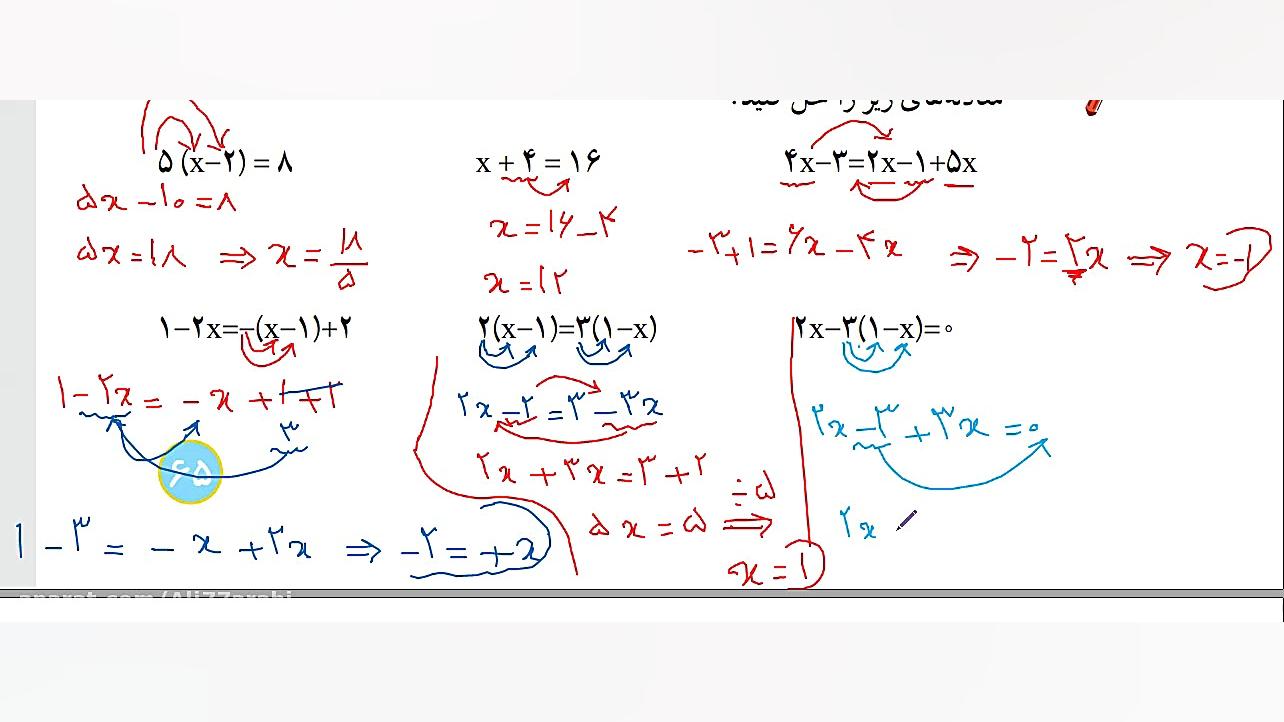 ۵(x−۲) = ۸
۵x − ۱۰ = ۸
۵x = ۱۸ ⇒ x = ۱۸/۵
x + ۴ = ۱۶
x = ۱۶ − ۴
x = ۱۲
۴x−۳=۲x−۱+۵x
−۳+۱=۷x − ۴x ⇒ −۲ = ۳x ⇒ x = −۱
۱−۲x=−(x−۱)+۲
۱ − ۲x = − x + ۱ + ۲
۳
۶۵
۱ − ۳ = − x + ۲x ⇒ −۲ = +x
۲(x−۱)=۳(۱−x)
۲x − ۲ = ۳ − ۳x
۲x + ۳x = ۳ + ۲
۵x = ۵ ÷۵ ⇒
x = ۱
۲x−۳(۱−x)=۰
۲x − ۳ + ۳x = ۰
۲x
aparat.com/Ali77arabi